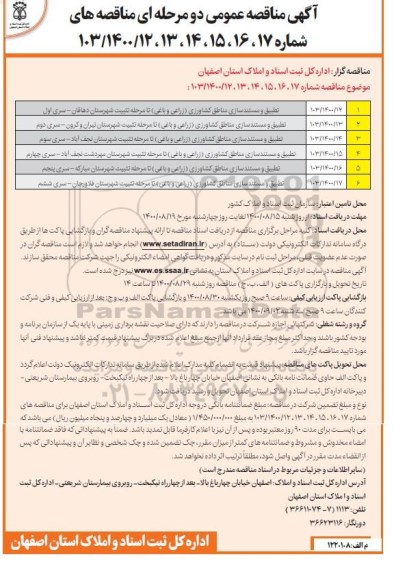 آگهی مناقصه عمومی دو مرحله ای مناقصه های
شماره ۱۷، ۱۶، ۱۵، ۱۴، ۱۳، ۱۰۳/۱۴۰۰/۱۲
مناقصه گزار: اداره کل ثبت اسناد و املاک استان اصفهان
موضوع مناقصه شماره ۱۷، ۱۶، ۱۵، ۱۴، ۱۳، ۱۰۳/۱۴۰۰/۱۲:
۱ ۱۰۳/۱۴۰۰/۱۲ تطبیق و مستندسازی مناطق کشاورزی (زراعی و باغی) تا مرحله تثبیت شهرستان دهاقان - سری اول
۲ ۱۰۳/۱۴۰۰/۱۳ تطبیق و مستندسازی مناطق کشاورزی (زراعی و باغی) تا مرحله تثبیت شهرستان تیران و کرون - سری دوم
۳ ۱۰۳/۱۴۰۰/۱۴ تطبیق و مستندسازی مناطق کشاورزی (زراعی و باغی) تا مرحله تثبیت شهرستان نجف آباد - سری سوم
۴ ۱۰۳/۱۴۰۰/۱۵ تطبیق و مستندسازی مناطق کشاورزی (زراعی و باغی) تا مرحله تثبیت شهرستان مهردشت نجف آباد - سری چهارم
۵ ۱۰۳/۱۴۰۰/۱۶ تطبیق و مستندسازی مناطق کشاورزی (زراعی و باغی) تا مرحله تثبیت شهرستان مبارکه - سری پنجم
۶ ۱۰۳/۱۴۰۰/۱۷ تطبیق و مستندسازی مناطق کشاورزی (زراعی و باغی) تا مرحله تثبیت شهرستان فلاورجان - سری ششم
محل تامین اعتبار: سازمان ثبت اسناد و املاک کشور
مهلت دریافت اسناد: از روز شنبه ۱۴۰۰/۰۸/۱۵ لغایت روز چهارشنبه مورخ ۱۴۰۰/۰۸/۱۹
محل دریافت اسناد: کلیه مراحل برگزاری مناقصه از دریافت اسناد مناقصه تا ارائه پیشنهاد مناقصه گران و بازگشایی پاکت ها از طریق
درگاه سامانه تدارکات الکترونیکی دولت (ستاد) به آدرس (www.setadiran.ir) انجام خواهد شد و لازم است مناقصه گران در
صورت عدم عضویت قبلی، مراحل ثبت نام در سایت مذکور و دریافت گواهی امضاء الکترونیکی را جهت شرکت مناقصه محقق سازند.
آگهی مناقصه در سایت اداره کل ثبت اسناد و املاک استان به نشانی www.es.ssaa.ir نیز درج شده است.
تاریخ تحویل و بارگزاری پاکت های (الف، ب، ج) مناقصه روز شنبه ۱۴۰۰/۰۸/۲۹ تا ساعت ۱۴
بازگشایی پاکت ارزیابی کیفی: ساعت ۹ صبح روز یکشنبه ۱۴۰۰/۰۸/۳۰ و بازگشایی پاکت الف و ب و ج: بعد از ارزیابی کیفی و فنی شرکت
کنندگان ساعت ۹ صبح سه شنبه ۱۴۰۰/۰۹/۰۲ می باشد
گروه و رشته شغلی: شرکتهایی اجازه شرکت در مناقصه را دارند که دارای صلاحیت نقشه برداری زمینی با پایه یک از سازمان برنامه و
بودجه کشور باشند
مورد تایید مناقصه گزار باشد.
محل تحویل پاکت های مناقصه:
و پاکت الف حاوی ضمانت نامه بانکی به نشانی اصفهان خیابان چهارباغ بالا - بعد از چهارراه نیکبخت - روبروی بیمارستان شریعتی -
نوع و مبلغ تضمین شرکت در مناقصه: مبلغ ضمانتنامه بانکی در وجه اداره کل ثبت اسناد و املاک استان اصفهان برای مناقصه های
شماره ۱۷، ۱۶، ۱۵، ۱۴، ۱۳، ۱۰۳/۱۴۰۰/۱۲ به مبلغ ۱/۴۵۰/۰۰۰/۰۰۰ ریال (معادل یک میلیارد و چهارصد و پنجاه میلیون ریال) می باشد که
می بایست برای مدت ۹۰ روز معتبر بوده و پس از آن نیز با اعلام کارفرما قابل تمدید باشد. ضمنا به پیشنهاداتی که فاقد ضمانتنامه یا
امضاء مخدوش و مشروط و ضمانتنامه های کمتر از میزان مقرر، چک تضمین شده و چک شخصی و نظایر آن و پیشنهاداتی که پس
از انقضاء مدت مقرر در آگهی واصل شود، مطلقا ترتیب اثر داده نخواهد شد.
(سایر اطلاعات و جزئیات مربوط در اسناد مناقصه مندرج است)
آدرس اداره کل ثبت اسناد و املاک: اصفهان خیابان چهارباغ بالا - بعد از چهارراه نیکبخت - روبروی بیمارستان شریعتی - اداره کل ثبت
اسناد و املاک استان اصفهان
تلفن: ۱۱۱۳ (۷-۳۶۶۱۱۰۷۴)
دورنگار: ۳۶۶۲۳۱۱۶
م الف: ۱۲۲۰۱۰۸
اداره کل ثبت اسناد و املاک استان اصفهان